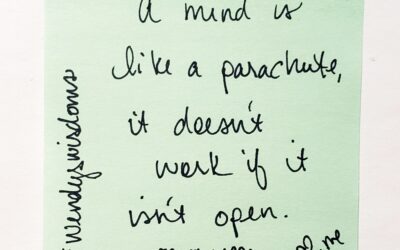 A mind is
like a parachute,
it doesn't
work if it
isn't open.
#wendyswisdoms